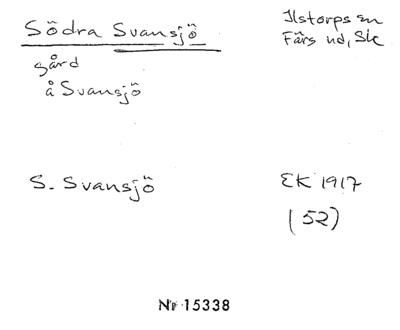 Södra Svansjö
Ilstorps sn
Färs hd, Sk
gård
å Svansjö
S. Svansjö
EK 1917
(52)
Nr 15338